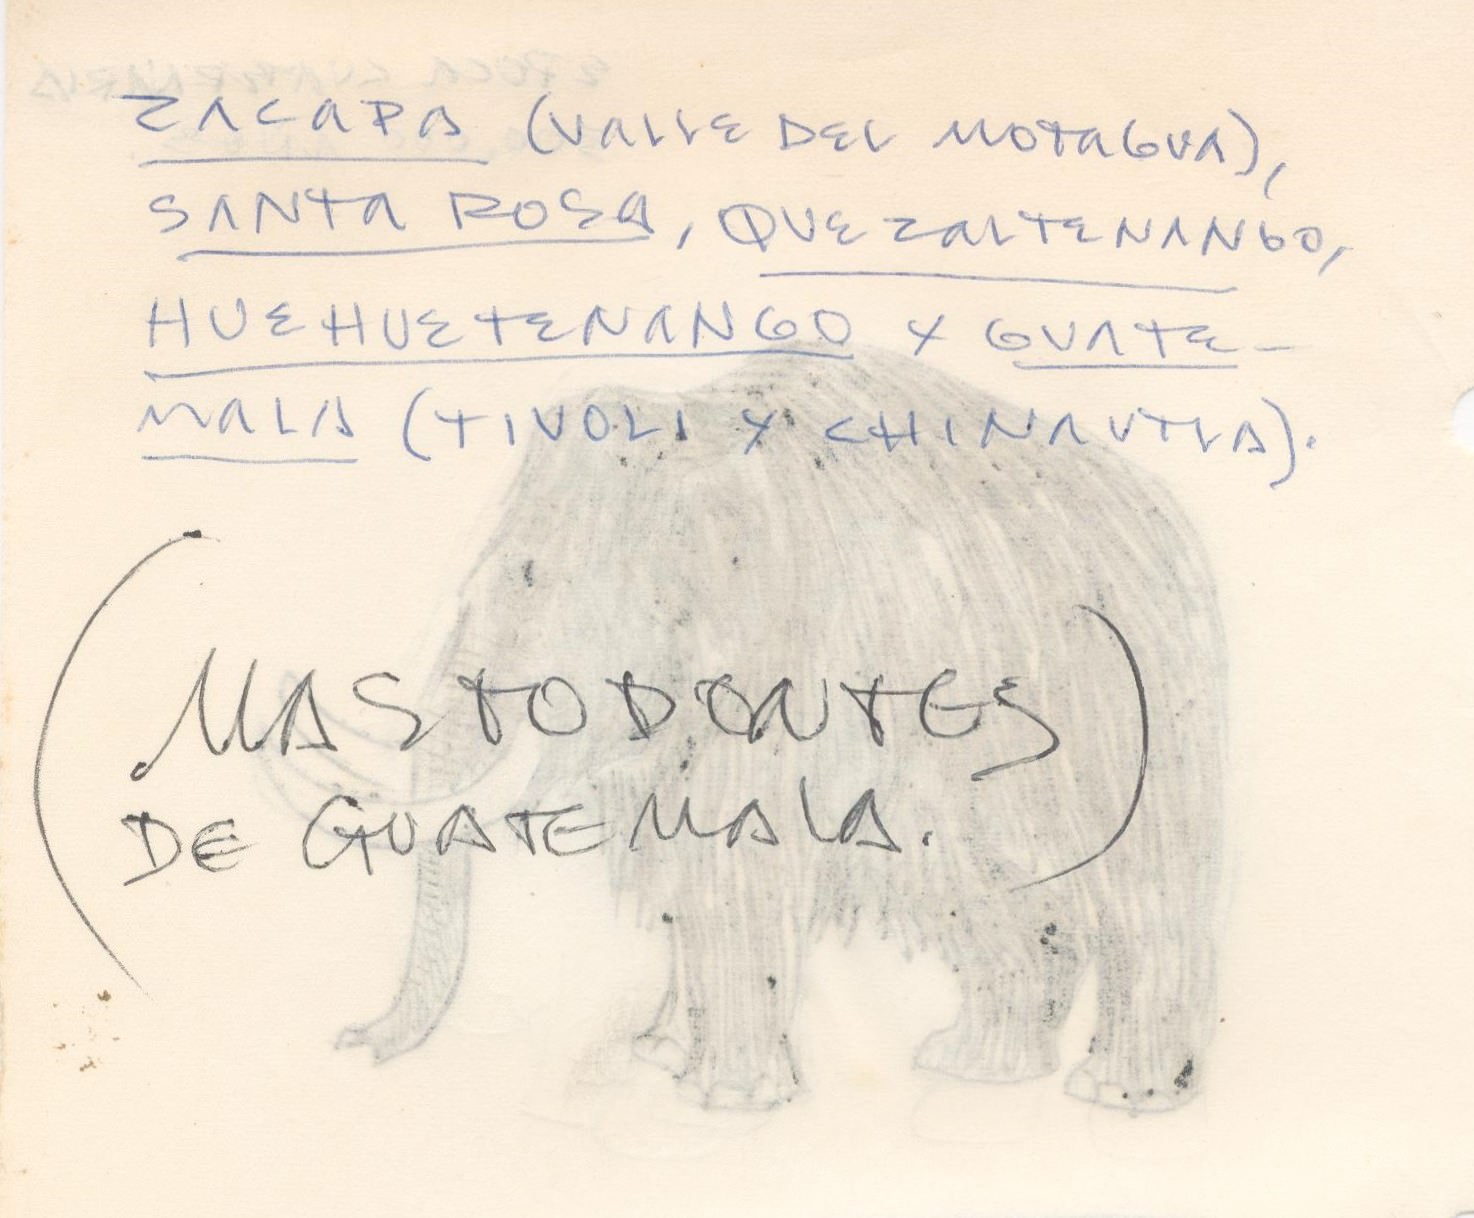 ZACAPA (VALLE DEL MOTAGUA),
SANTA ROSA, QUEZALTENANGO,
HUEHUETENANGO Y GUATE-
MALA (TIVOLI Y CHINAUTLA).
(MASTODONTES
DE GUATEMALA.)